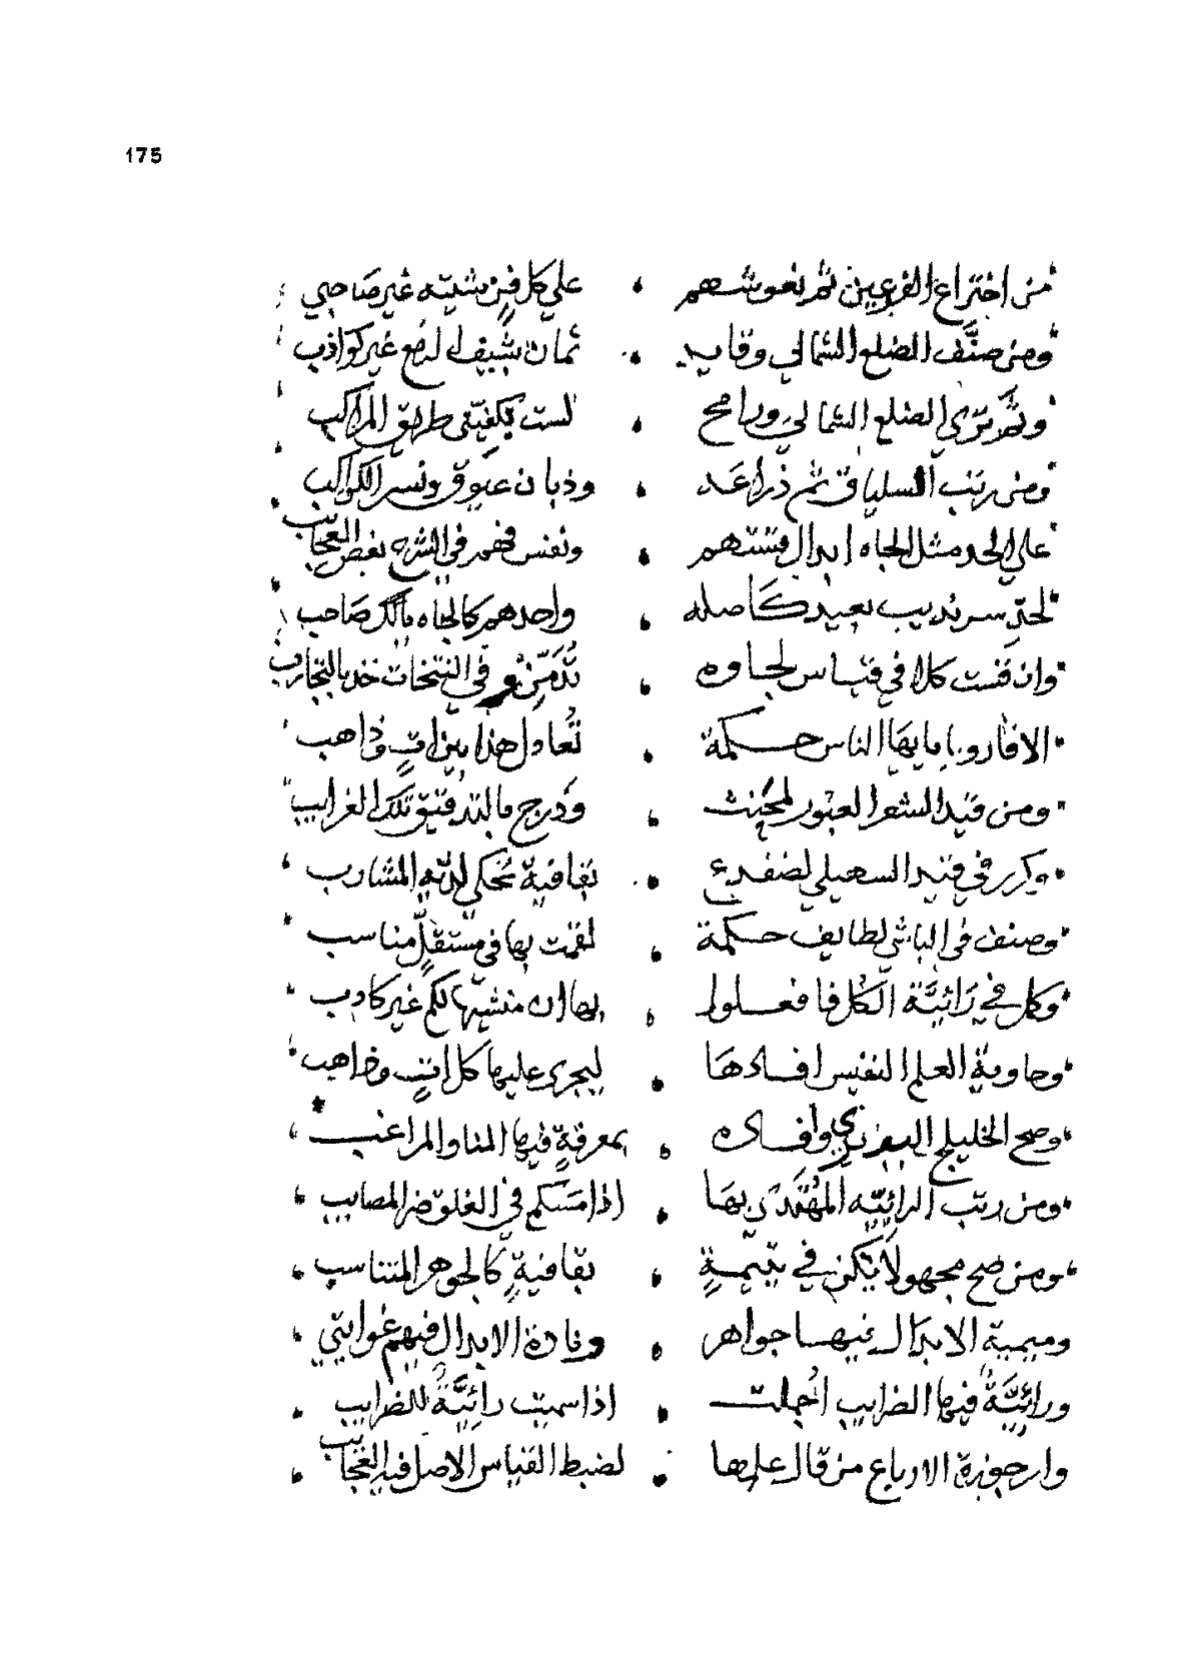 175
من اختراع الفرعين ثم نعوشهم ، على كل فن شيته غير صاحبي
ومن صنف الضلع الشمالي وقايد ، ثمان بشيف لربع غير كواذب
وثم ترى الضلع الشمالي ورامح ، لست بكفيتى طريق المراكب
ومن رتب السلياق ثم ذراعه ، وذبان عيوق ونسر الكواكب
على الحد مثل الجاه ابدال قستهم ، ونفس فهمهم في الشرح بعض العجايب
لحد سرنديب بعيد كاصله ، واحدهم كالجاه بالك صاحب
وان قست كلا في قياس لجاوه ، في النتخات خذ بالتجارب
الا فاروا يا ايها الناس حكمة ، تعادل هذا بين ات وذاهب
ومن قيد الشعرا العبور لمحنث ، ودرج ما بالتدقيق تلك الغرايب
وكرر في قيد السهيلي لضفدع ، بقافية تحكي لذيه المشارب
وصنف في الباشي لطايف حكمة ، لقمت بها في مستقل مناسب
وكل في رائية الكل فافعلوا ، بها ان منشيها لكم غير كاذب
وحاوية العلم النفيس افادها ، ليجرى عليها كل ات وذاهب
وصح الخليج البربري وافاده ، بمعرفة فيها المنا والمراغب
ومن رتب الرائيه المهتدى بها ، اذا مسكم في الغلق ضر المصايب
ومن صح مجهولا يكن في يتيمة ، بقافية كالجوهر المتناسب
وميمية الابدال فيها جواهر ، ونادة الابدال فيهم غوايتي
ورائية فيها الضرايب انجلت ، اذا سميت رائية للضرايب
وارجوزة الارباع من قال علمها ، لضبط القياس الاصل فيه العجايب